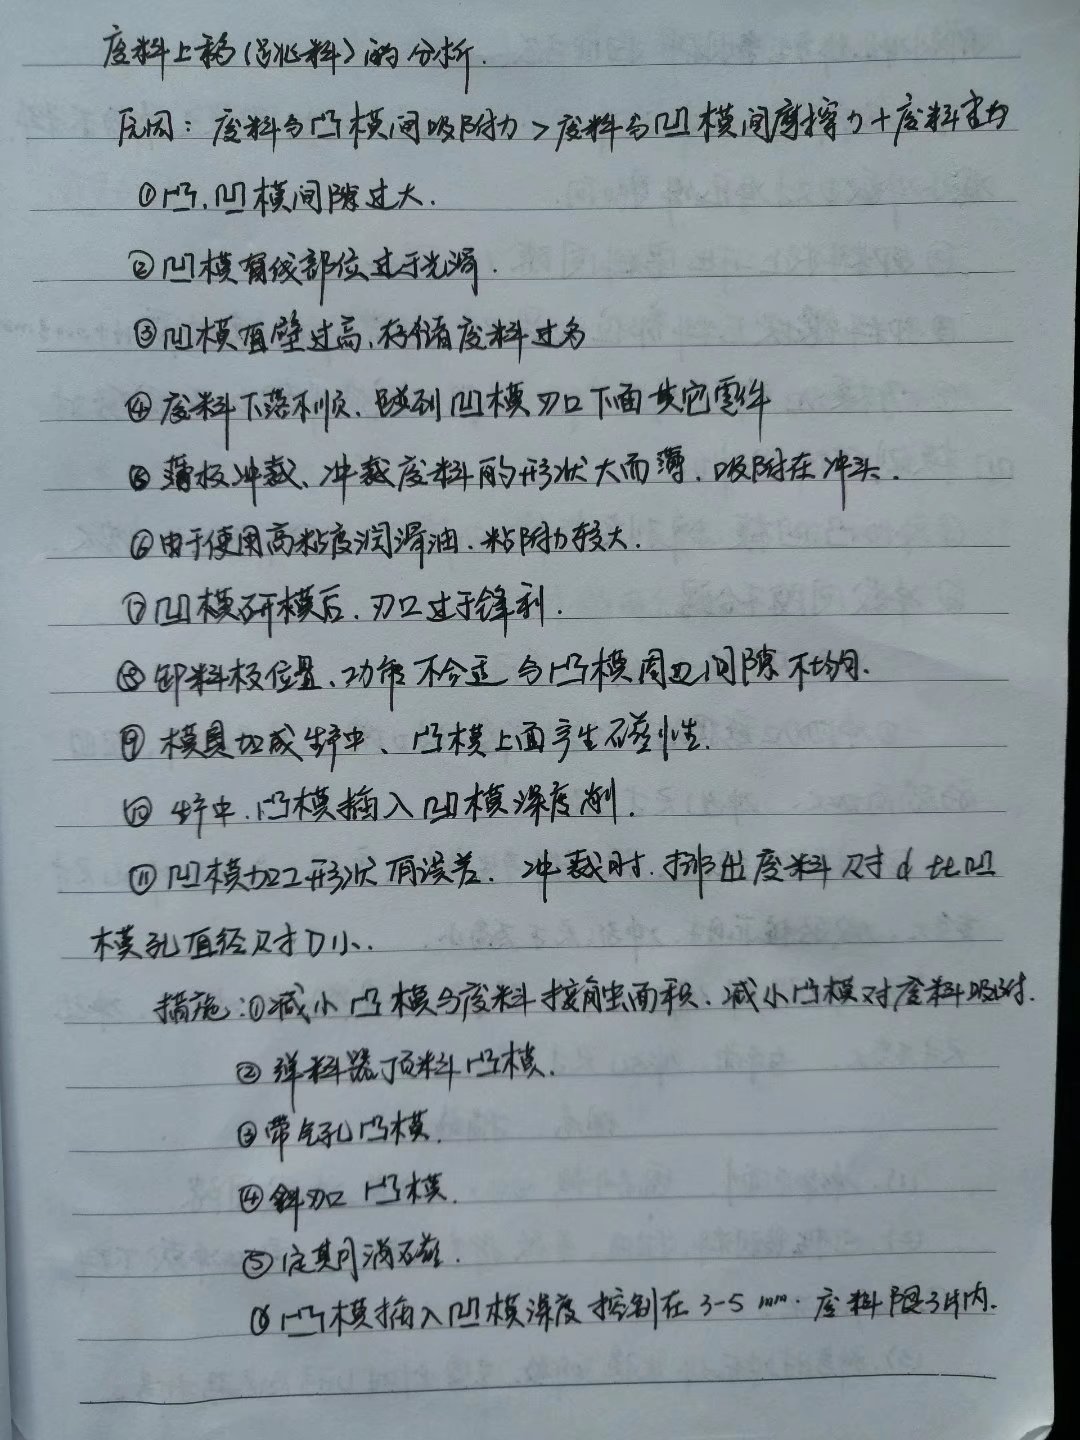 废料上移(跳料)的分析.
原因: 废料与凸模间吸附力>废料与凹模间摩擦力+废料重力
①凸、凹模间隙过大.
②凹模直线部位过于光滑.
③凹模直壁过高,存储废料过多
④废料下落不顺、碰到凹模刃口下面其它零件
⑤薄板冲裁、冲裁废料的形状大而薄,吸附在冲头.
⑥由于使用高粘度润滑油、粘附力较大.
⑦凹模研模后、刃口过于锋利.
⑧卸料板位置、功能不合适与凸模周边间隙不均匀.
⑨模具加成生产中、凸模上面产生磁性.
⑩生产中,凸模插入凹模深度削.
⑪凹模加工形状有误差、冲裁时、排出废料尺寸d比凹
模孔直径尺寸D小.
措施:①减小凸模与废料接触面积、减小凸模对废料吸附.
②弹料器顶料凸模.
③带气孔凸模.
④斜刃口凸模.
⑤定期消磁.
⑥凸模插入凹模深度控制在3-5mm. 废料限3片内.